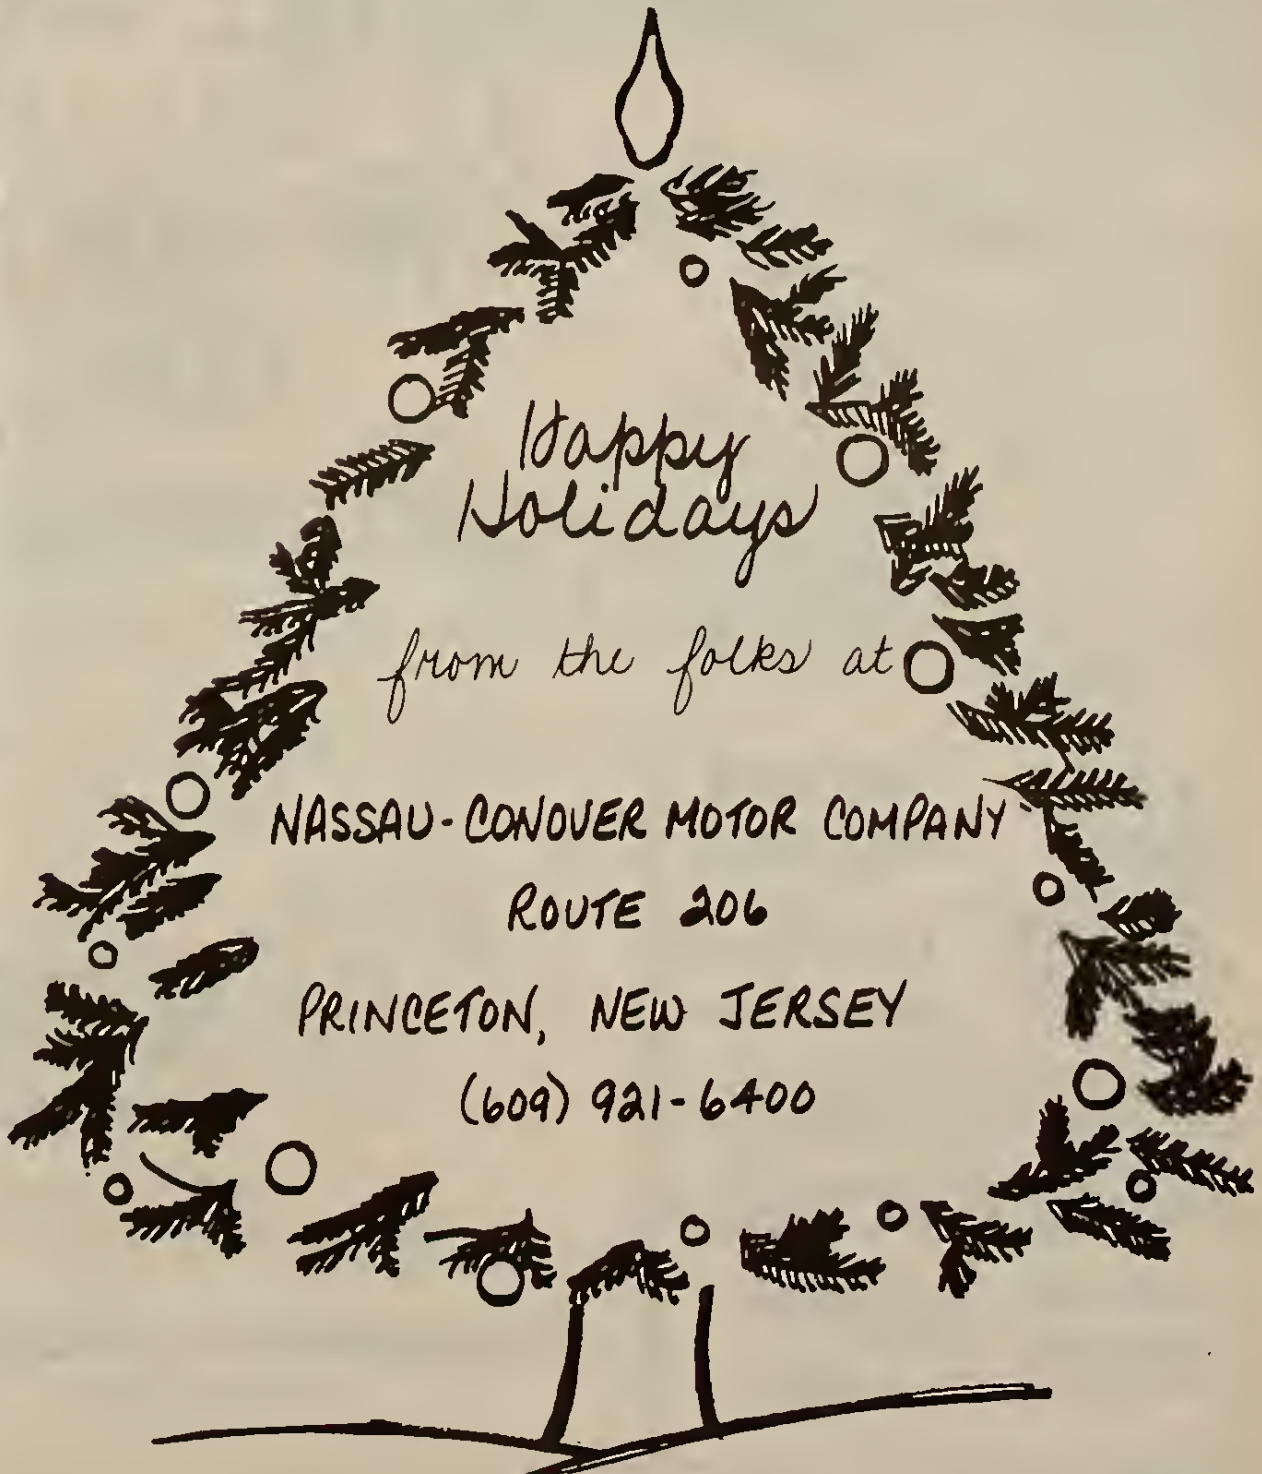 Happy
Holidays
from the folks at
NASSAU-CONOVER MOTOR COMPANY
ROUTE 206
PRINCETON, NEW JERSEY
(609) 921-6400